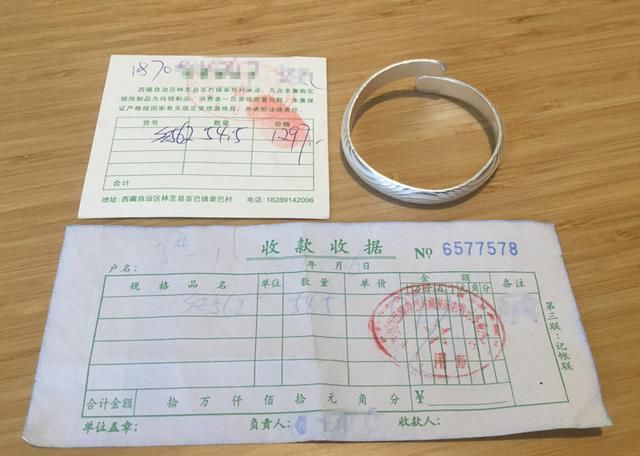 1870
西藏自治区林芝县百巴镇章巴村承诺，凡在本寨购买
银饰制品为纯银制品，消费者一旦发现质量问题，本寨保
证严格按国家有关规定受理退货，并承担法律责任。
货号 数量 价格
SZ562 54.5 1297
合计
地址：西藏自治区林芝县百巴镇章巴村 电话：18289142006
收款收据 No 6577578
户名： 年 6月 日
规格品名 单位 数量 单价 金额 备注
百十元角分
SZ562 545
第三联：记帐联
合计金额 拾 万 仟 佰 拾 元 角 分 ¥
单位盖章： 负责人： 收款人：